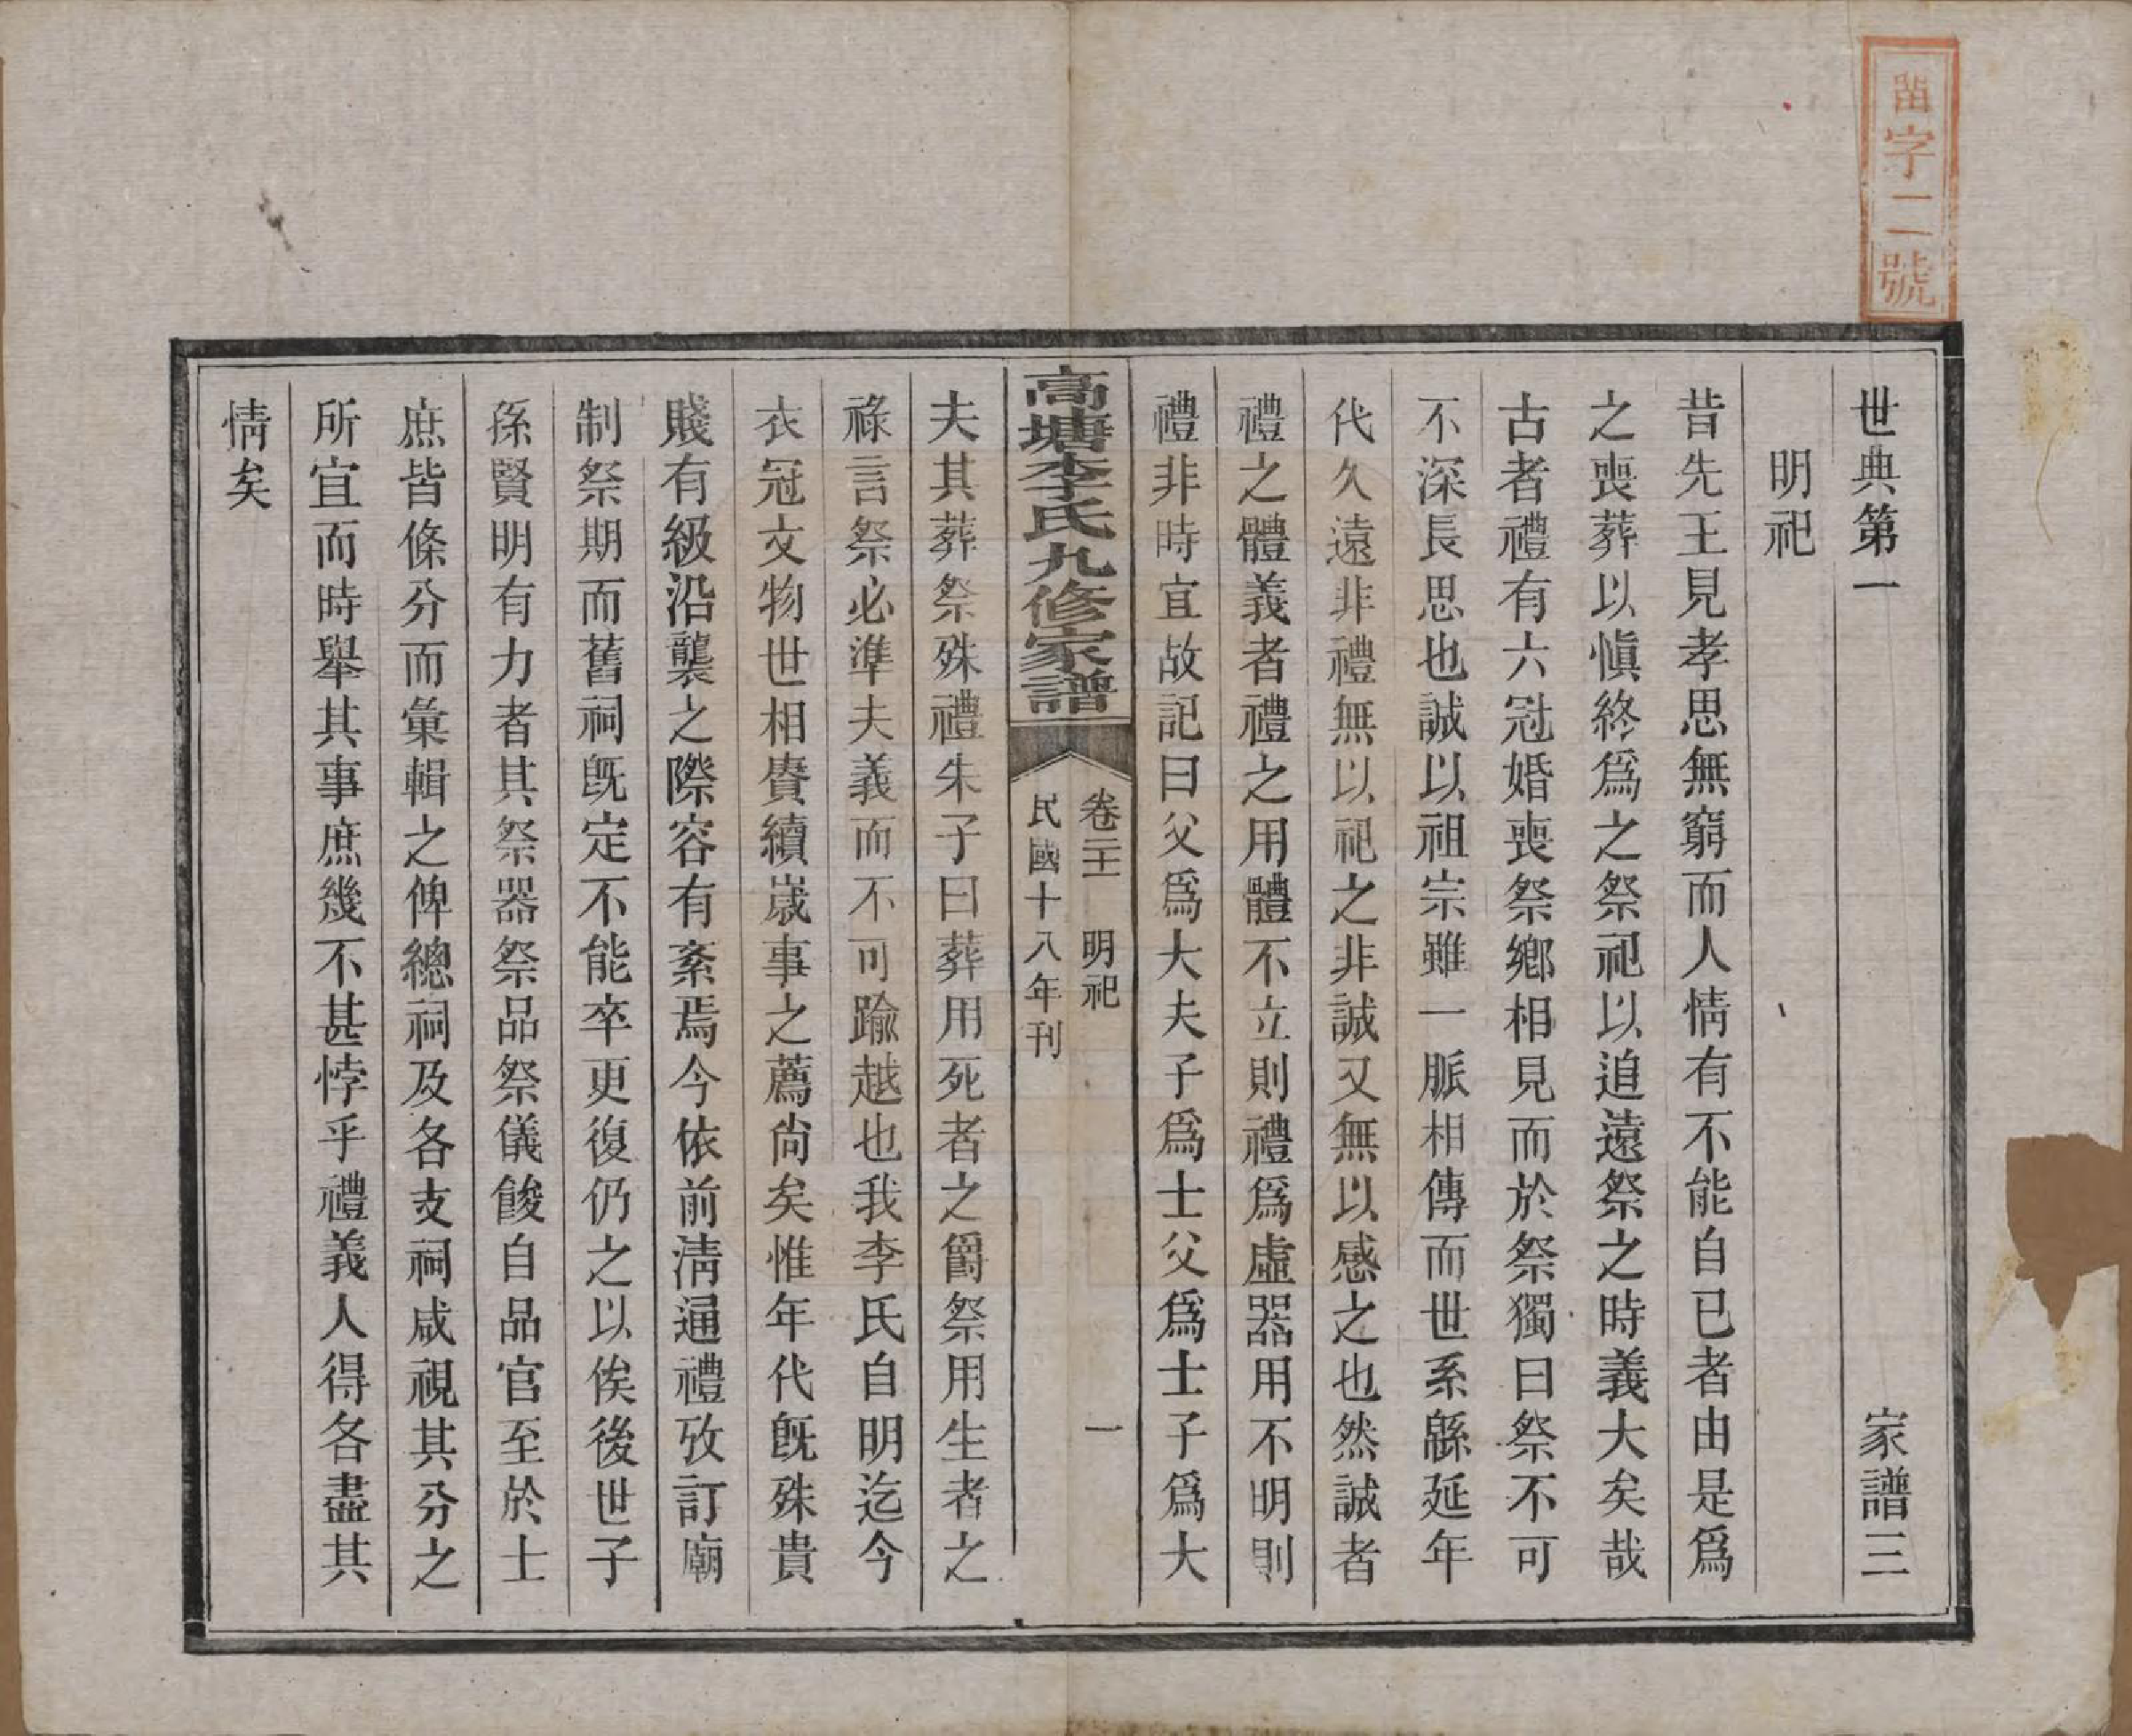 留字二號
世典第一　家譜三
明祀
昔先王見孝思無窮而人情有不能自已者由是爲
之喪葬以慎終爲之祭祀以追遠祭之時義大矣哉
古者禮有六冠婚喪祭鄉相見而於祭獨曰祭不可
不深長思也誠以祖宗雖一脈相傳而世系緜延年
代久遠非禮無以祀之非誠又無以感之也然誠者
禮之體義者禮之用體不立則禮爲虛器用不明則
禮非時宜故記曰父爲大夫子爲士父爲士子爲大
高塘李氏九修家譜
卷二十一　明祀　一
民國十八年刊
夫其葬祭殊禮朱子曰葬用死者之爵祭用生者之
祿言祭必準夫義而不可踰越也我李氏自明迄今
衣冠文物世相賡續歲事之薦尙矣惟年代既殊貴
賤有級沿襲之際容有紊焉今依前淸通禮攷訂廟
制祭期而舊祠既定不能卒更復仍之以俟後世子
孫賢明有力者其祭器祭品祭儀餕自品官至於士
庶皆條分而彙輯之俾總祠及各支祠咸視其分之
所宜而時舉其事庶幾不甚悖乎禮義人得各盡其
情矣